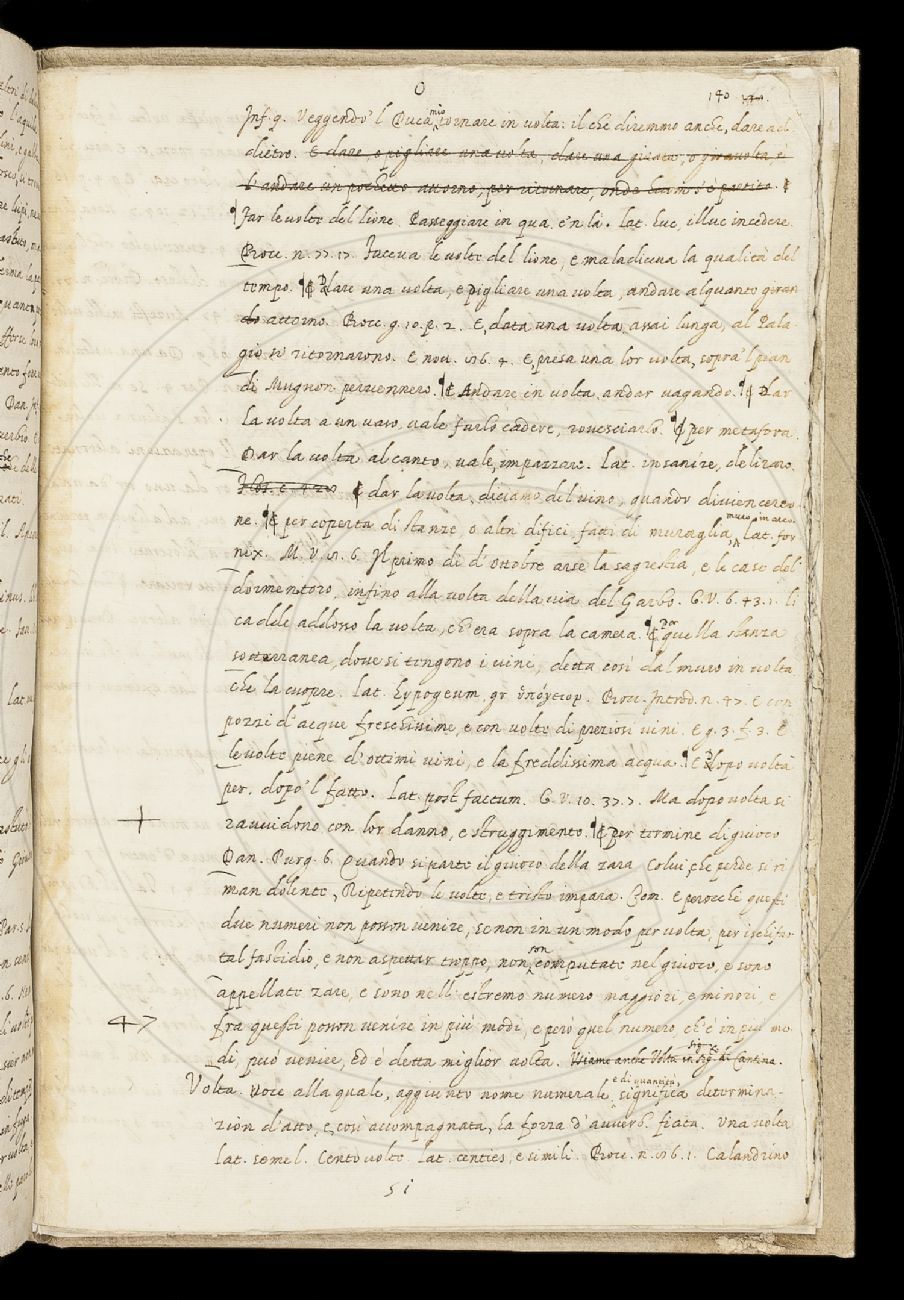 O
140
Inf. 9. Veggendo 'l Duca mio tornare in volta: il che diremmo anche, dare ad
dietro. E dare, o pigliare una volta, dare una girata, o giravolta, è
L'andare un pochetto attorno, per ritornare, onde huom s'è partito.
¶ Far le volte del lione. Passeggiare in qua e 'n là. lat. huc, illuc incedere
Bocc. n. 77. 17. Faceva le volte del lione, e maladiceva la qualità del
tempo. ¶ Dare una volta, e pigliare una volta, andare alquanto giran
do attorno. Bocc. g. 10. p. 2. E, data una volta assai lunga, al Pala
gio si ritornarono. E nov. 56. 4. E, presa una lor volta, sopra 'l pian
di Mugnon pervennero. ¶ Andare in volta, andar vagando. ¶ Dar
la volta a un vaso, vale farlo cadere, rovesciarlo. ¶ per metafora.
Dar la volta al canto, vale, impazzare. Lat. insanire, delirare.
¶ dar la volta, diciamo del vino, quando diviene cerco
ne. ¶ per coperta di stanze, o altri difici, fatti di muraglia, muro in arco. Lat. for
nix. M. V. 5. 6. Il primo dì d'Ottobre arse la sagrestia, e le case del
dormentoro, infino alla volta della via del Garbo. G. V. 6. 43. 1. li
cadde addosso la volta, ch'era sopra la camera. ¶ Per quella stanza
sotterranea, dove si tengono i vini, detta così dal muro in volta
che la cuopre. lat. hypogeum, gr. ὑπόγειον. Bocc. Introd. n. 47. E con
pozzi d'acque freschissime, e con volte di preziosi vini. E g. 3. f. 3. E
le volte piene d'ottimi vini, e la freddissima acqua. ¶ E Dopo volta
per, dopo 'l fatto. lat. post factum. G. V. 10. 37. 7. Ma dopo volta si
ravvidono con lor danno, e struggimento. ¶ per termine di giuoco
Dan. Purg. 6. Quando si parte il giuoco della zara Colui, che perde si ri
man dolente, Ripetendo le volte, e tristo impara. Com. E perocchè questi
due numeri non posson venire, se non in un modo per volta, per ischifar
tal fastidio, e non aspettar troppo, non son computate nel giuoco, e sono
appellate zare, e sono nell'estremo numero maggiori, e minori, e
fra questi posson venire in più modi, e però quel numero, ch'è in più mo
di, può venire, ed è detta miglior volta. Usiamo anche Volta in sig. di Cantina.
Volta. Voce alla quale, aggiunto nome numerale, e di quantità, significa determina-
zion d'atto, e, così accompagnata, ha forza d'avverb. fiata. Una volta
lat. semel. Cento volte. lat. centies, e simili. Bocc. n. 56. 1. Calandrino
+
47
51